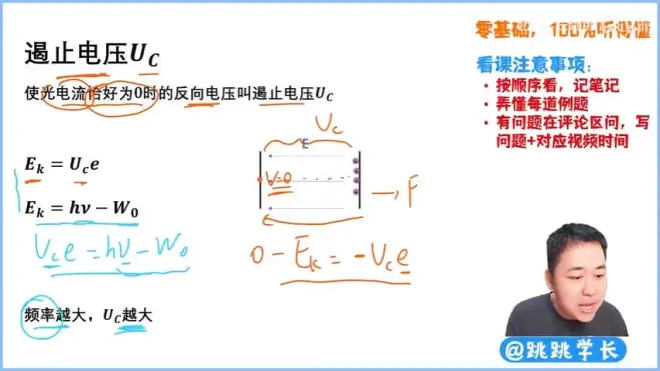 零基础，100%听得懂
遏止电压U_C
看课注意事项：
• 按顺序看，记笔记
• 弄懂每道例题
• 有问题在评论区问，写
问题+对应视频时间
使光电流恰好为0时的反向电压叫遏止电压U_C
U_c
E
E_k = U_c e
V=0
F
E_k = hν − W_0
U_c e = hν − W_0
0 − E_k = −U_c e
频率越大，U_C越大
@跳跳学长